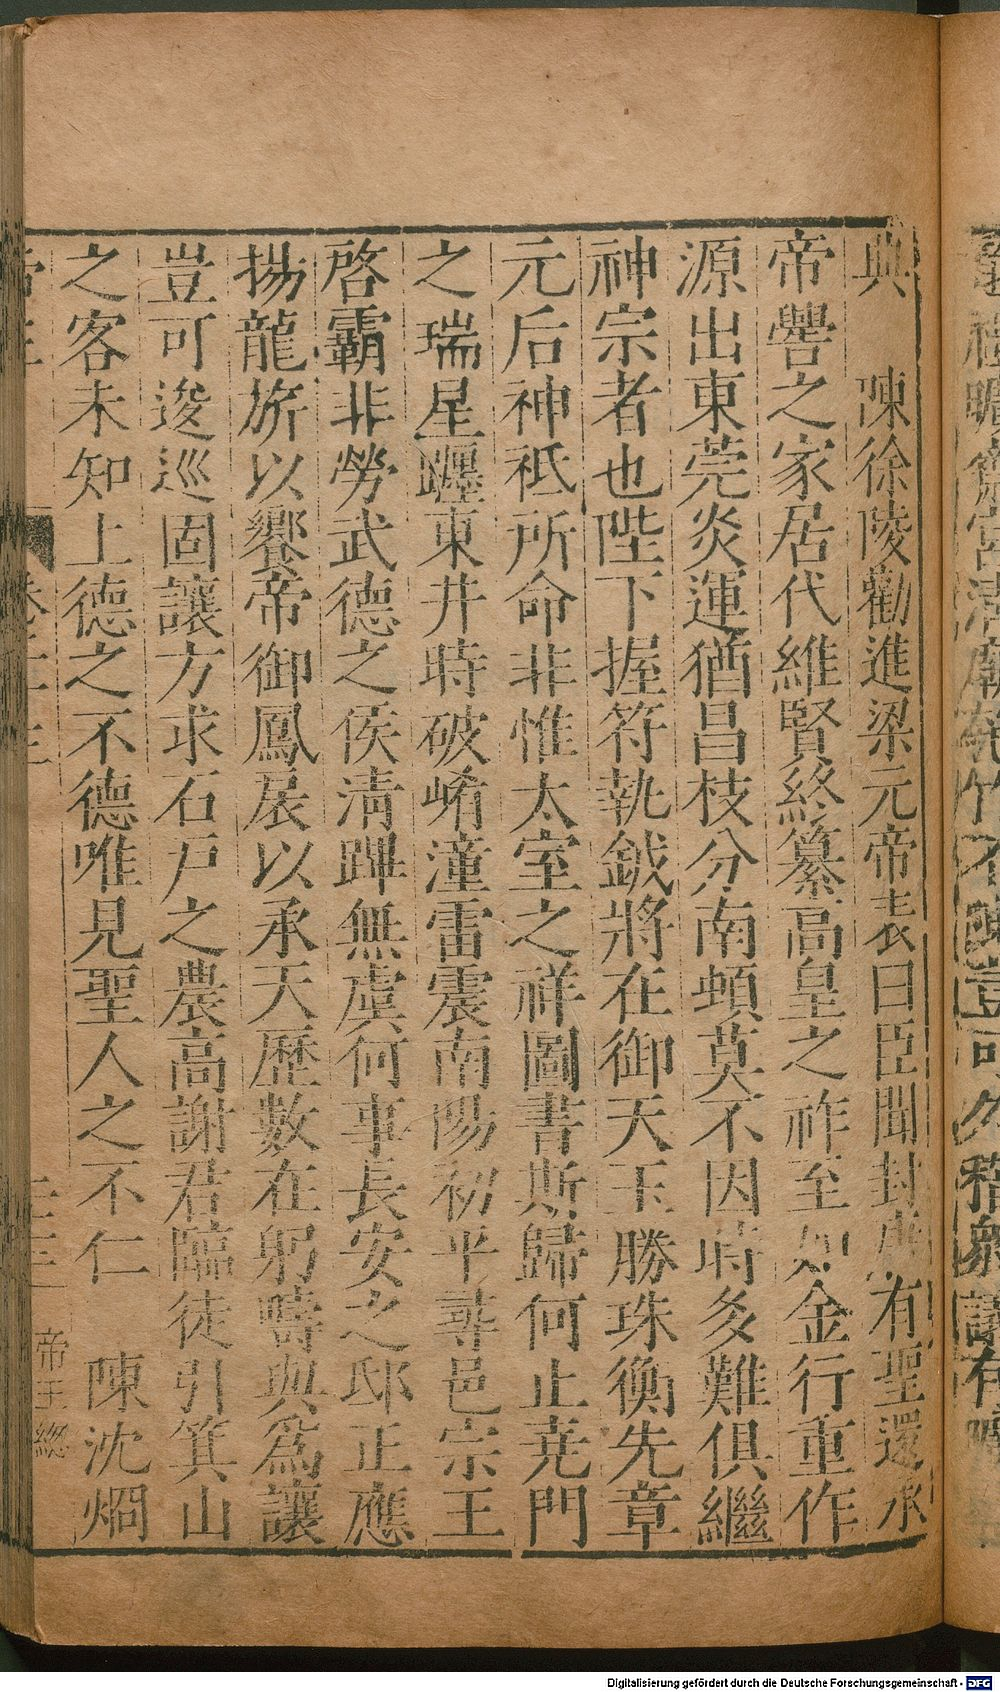 典　陳徐陵勸進梁元帝表曰臣聞封唐有聖還承
帝嚳之家居代維賢終纂高皇之祚至如金行重作
源出東莞炎運猶昌枝分南頓莫不因時多難俱繼
神宗者也陛下握符執鉞將在御天玉勝珠衡先章
元后神祗所命非惟太室之祥圖書斯歸何止堯門
之瑞星躔東井時破崤潼雷震南陽初平尋邑宗王
啓霸非勞武德之侯清蹕無虞何事長安之邸正應
揚龍旂以饗帝御鳳扆以承天歷數在躬疇與爲讓
豈可逡巡固讓方求石戶之農高謝君臨徒引箕山
之客未知上德之不德唯見聖人之不仁　陳沈烱
帝王總
Digitalisierung gefördert durch die Deutsche Forschungsgemeinschaft - DFG